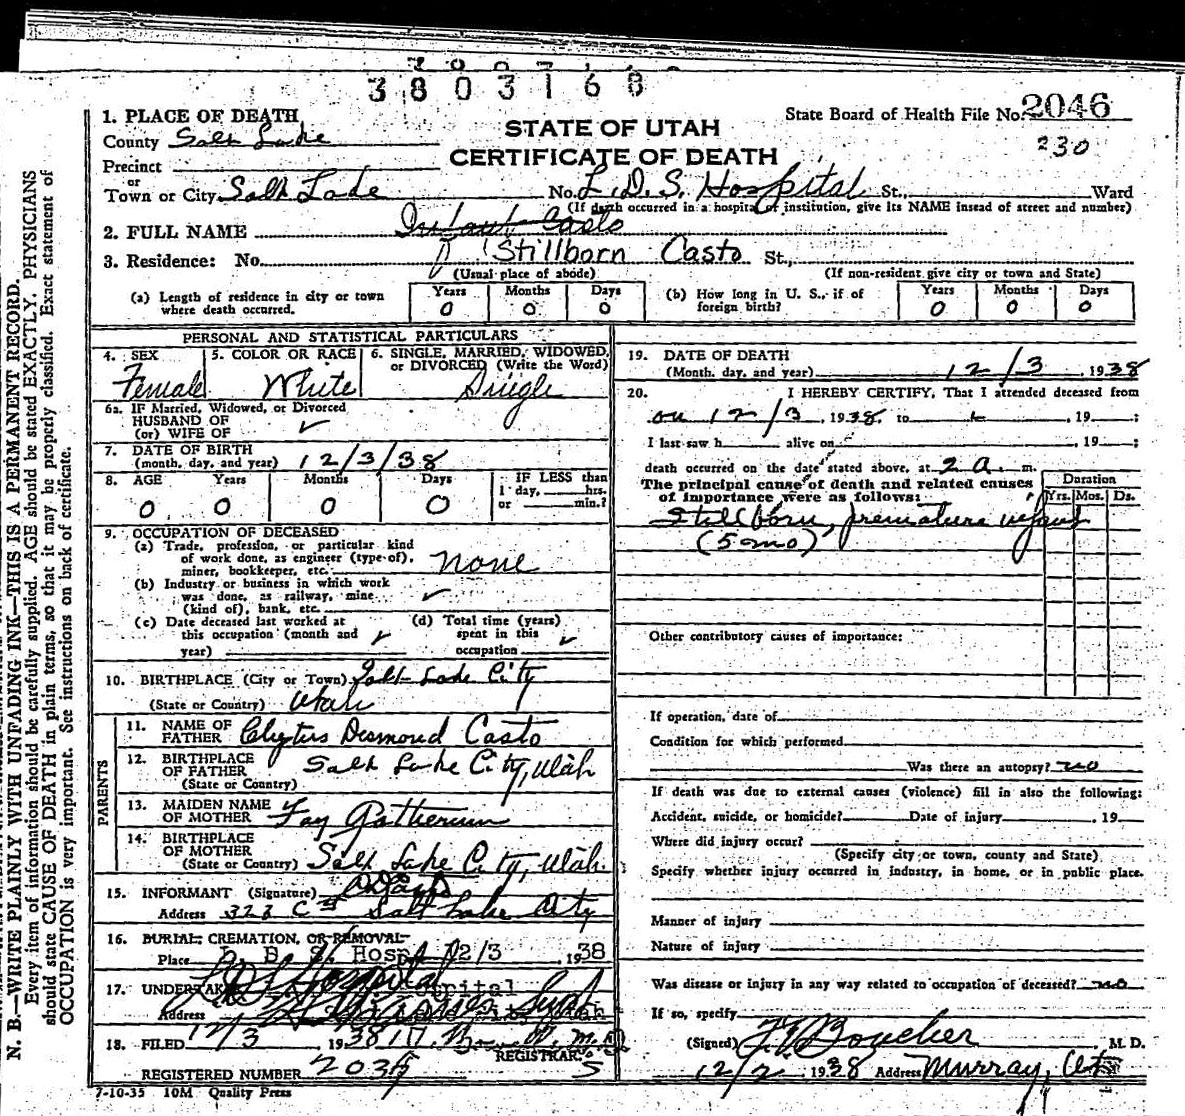 3803168
1. PLACE OF DEATH
State Board of Health File No. 2046
County Salt Lake
STATE OF UTAH
230
CERTIFICATE OF DEATH
Precinct
or
Town or City Salt Lake No. L.D.S. Hospital St., Ward
(If death occurred in a hospital or institution, give its NAME insead of street and number)
2. FULL NAME Infant Casto
Stillborn Casto
3. Residence: No. St.,
(Usual place of abode) (If non-resident give city or town and State)
(a) Length of residence in city or town where death occurred. Years 0 Months 0 Days 0
(b) How long in U. S., if of foreign birth? Years 0 Months 0 Days 0
PERSONAL AND STATISTICAL PARTICULARS
4. SEX Female
5. COLOR OR RACE White
6. SINGLE, MARRIED, WIDOWED, or DIVORCED (Write the Word) Single
6a. IF Married, Widowed, or Divorced
HUSBAND OF
(or) WIFE OF
7. DATE OF BIRTH
(month, day, and year) 12/3/38
8. AGE Years Months Days IF LESS than
1 day, hrs.
or min.?
0 0 0 0
9. OCCUPATION OF DECEASED
(a) Trade, profession, or particular kind
of work done, as engineer (type of),
miner, bookkeeper, etc. none
(b) Industry or business in which work
was done, as railway, mine
(kind of), bank, etc.
(c) Date deceased last worked at
this occupation (month and
year)
(d) Total time (years)
spent in this
occupation
10. BIRTHPLACE (City or Town) Salt Lake City
(State or Country) Utah
PARENTS
11. NAME OF FATHER Clytus Desmond Casto
12. BIRTHPLACE OF FATHER Salt Lake City, Utah
(State or Country)
13. MAIDEN NAME OF MOTHER Fay
14. BIRTHPLACE OF MOTHER
(State or Country) Salt Lake City, Utah.
15. INFORMANT (Signature)
Address 328 C St Salt Lake City
16. BURIAL, CREMATION, OR REMOVAL
Place L. D. S. Hosp. 12/3, 1938
17. UNDERTAKER L.D.S. Hospital
Address
18. FILED 12/3, 1938
REGISTRAR.
REGISTERED NUMBER 2035
5
7-10-35 10M Quality Press
19. DATE OF DEATH
(Month, day, and year) 12/3, 1938
20. I HEREBY CERTIFY, That I attended deceased from
on 12/3, 1938, to , 19 ;
I last saw h alive on , 19 ;
death occurred on the date stated above, at 2 a. m.
The principal cause of death and related causes
of importance were as follows:
Duration
Yrs. Mos. Ds.
Stillborn, premature infant
(5 mo)
Other contributory causes of importance:
If operation, date of
Condition for which performed
Was there an autopsy? no
If death was due to external causes (violence) fill in also the following:
Accident, suicide, or homicide? Date of injury , 19
Where did injury occur?
(Specify city or town, county and State)
Specify whether injury occurred in industry, in home, or in public place.
Manner of injury
Nature of injury
Was disease or injury in any way related to occupation of deceased? no
If so, specify
(Signed) Boucher, M. D.
12/2 1938 Address Murray, Ut
N. B.—WRITE PLAINLY WITH UNFADING INK—THIS IS A PERMANENT RECORD.
Every item of information should be carefully supplied. AGE should be stated EXACTLY. PHYSICIANS
should state CAUSE OF DEATH in plain terms, so that it may be properly classified. Exact statement of
OCCUPATION is very important. See instructions on back of certificate.